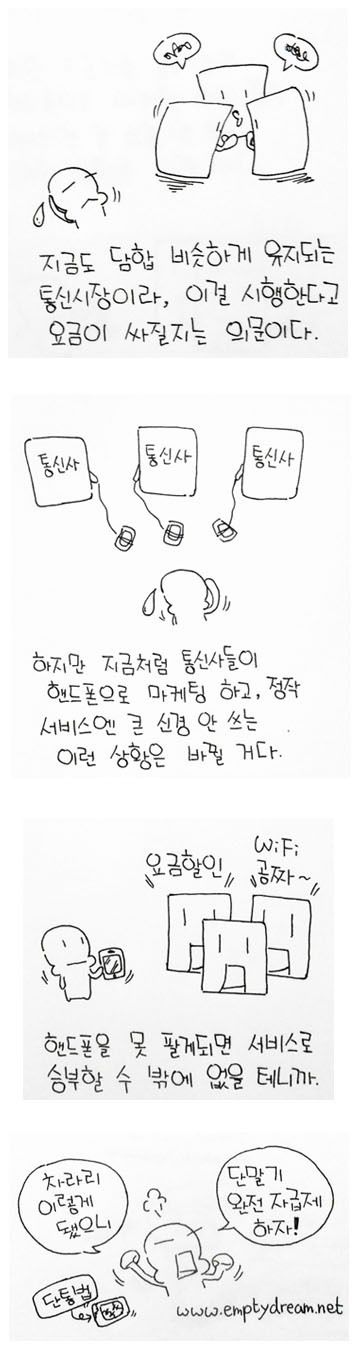 지금도 담합 비슷하게 유지되는
통신시장이라, 이걸 시행한다고
요금이 싸질지는 의문이다.
통신사
통신사
통신사
하지만 지금처럼 통신사들이
핸드폰으로 마케팅 하고, 정작
서비스엔 큰 신경 안 쓰는
이런 상황은 바뀔 거다.
요금할인
WiFi
공짜~
핸드폰을 못 팔게되면 서비스로
승부할 수 밖에 없을 테니까.
차라리
이렇게
됐으니
단말기
완전 자급제
하자!
단통법
www.emptydream.net